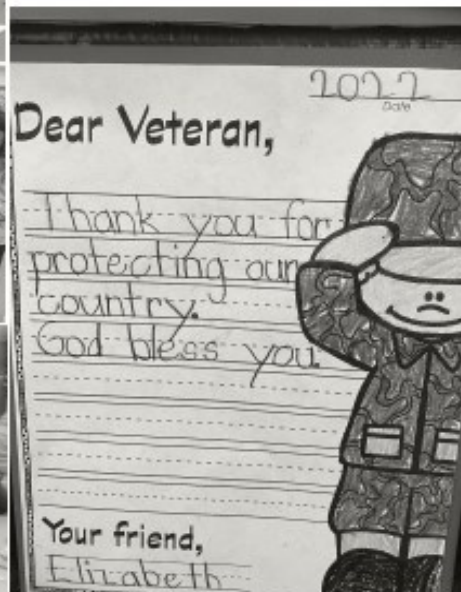 2022
Date
Dear Veteran,
Thank you for
protecting our
country.
God bless you.
Your friend,
Elizabeth